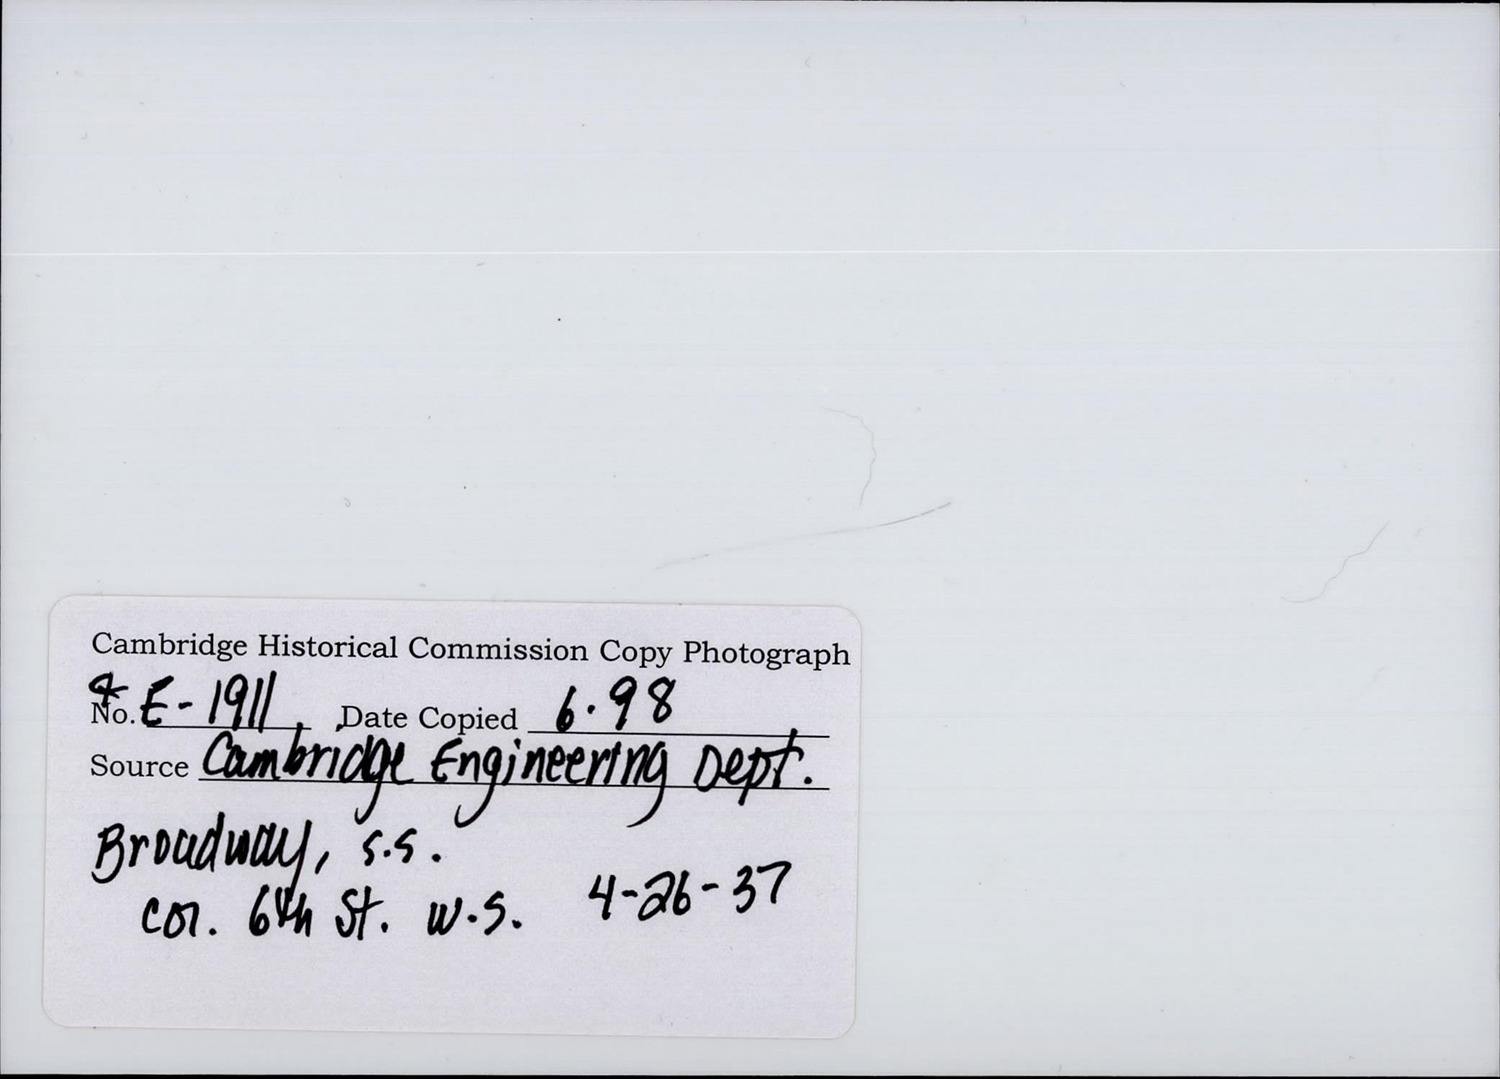 Cambridge Historical Commission Copy Photograph
No. E-1911 Date Copied 6.98
Source Cambridge Engineering Dept.
Broadway, s.s.
cor. 6th St. w.s. 4-26-37